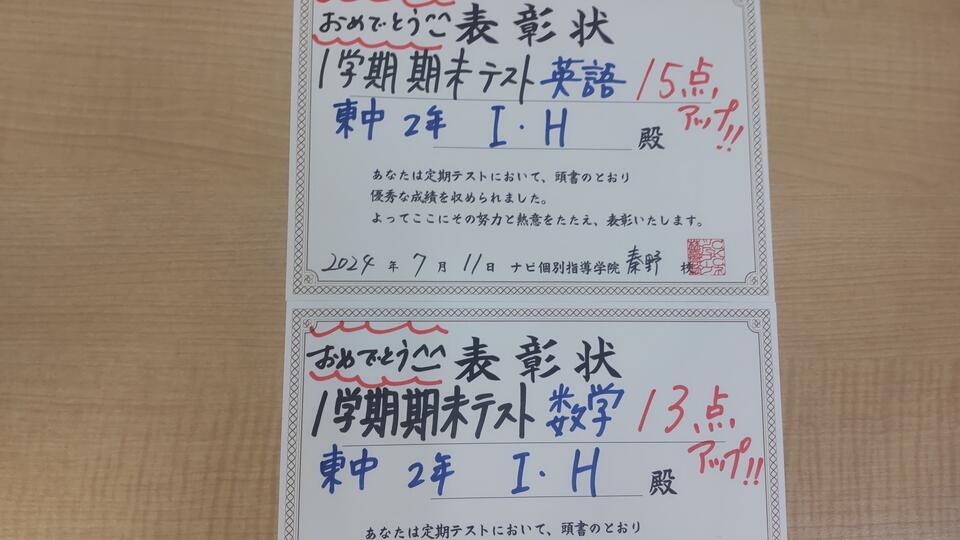 おめでとう^^ 表彰状
1学期期末テスト 英語 15点アップ!!
東中 2年 I・H 殿
あなたは定期テストにおいて、頭書のとおり
優秀な成績を収められました。
よってここにその努力と熱意をたたえ、表彰いたします。
2024年7月11日 ナビ個別指導学院 秦野校
おめでとう^^ 表彰状
1学期期末テスト 数学 13点アップ!!
東中 2年 I・H 殿
あなたは定期テストにおいて、頭書のとおり